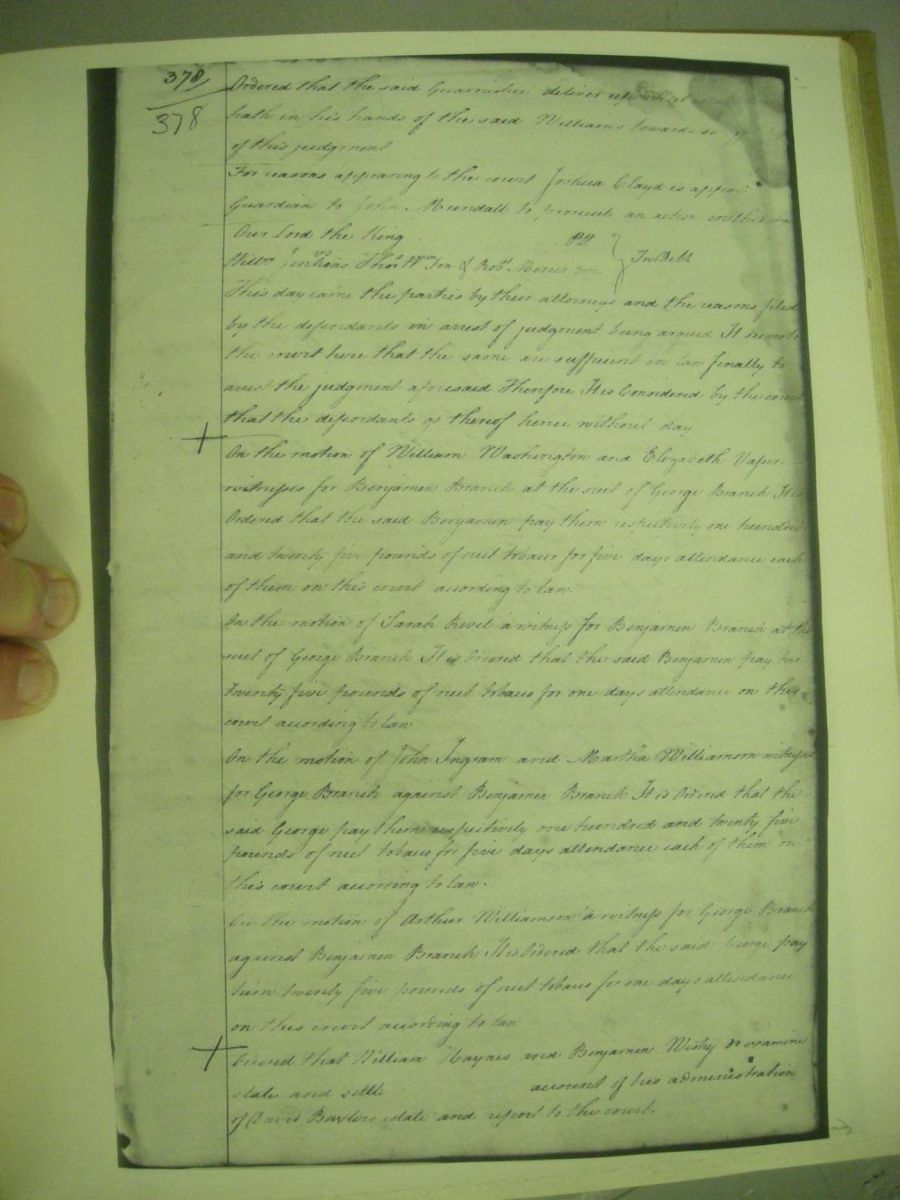 378
378
Ordered that the said Guarnishee deliver
hath in his hands of the said Williams towards
of this judgment
For reasons appearing to the court Joshua Clayd is
Guardian to John Mundall to prosecute an action
Our Lord the King Plt
Jenkins Thos Wm Ton & Robt. Mercer In Debt
This day came the parties by their attorneys and the reasons filed
by the defendants in arrest of judgment being argued It seems to
the court here that the same are sufficient in law finally to
arrest the judgment aforesaid Therefore It is Considered by the court
that the defendants go thereof hence without day
On the motion of William Washington and Elizabeth
witnesses for Benjamin Branch at the suit of George Branch It is
Ordered that the said Benjamin pay them respectively one hundred
and twenty five pounds of nett tobacco for five days attendance each
of them on this court according to law.
On the motion of Sarah Revel a witness for Benjamin Branch at the
suit of George Branch It is Ordered that the said Benjamin pay her
twenty five pounds of nett tobacco for one days attendance on this
court according to law
On the motion of John Ingram and Martha Williamson witnesses
for George Branch against Benjamin Branch It is Ordered that the
said George pay them respectively one hundred and twenty five
pounds of nett tobacco for five days attendance each of them on
this court according to law.
On the motion of Arthur Williamson a witness for George Branch
against Benjamin Branch It is Ordered that the said George pay
him twenty five pounds of nett tobacco for one days attendance
on this court according to law
Ordered that William Haynes and Benjamin do examine
state and settle account of his administration
of David estate and report to the court.